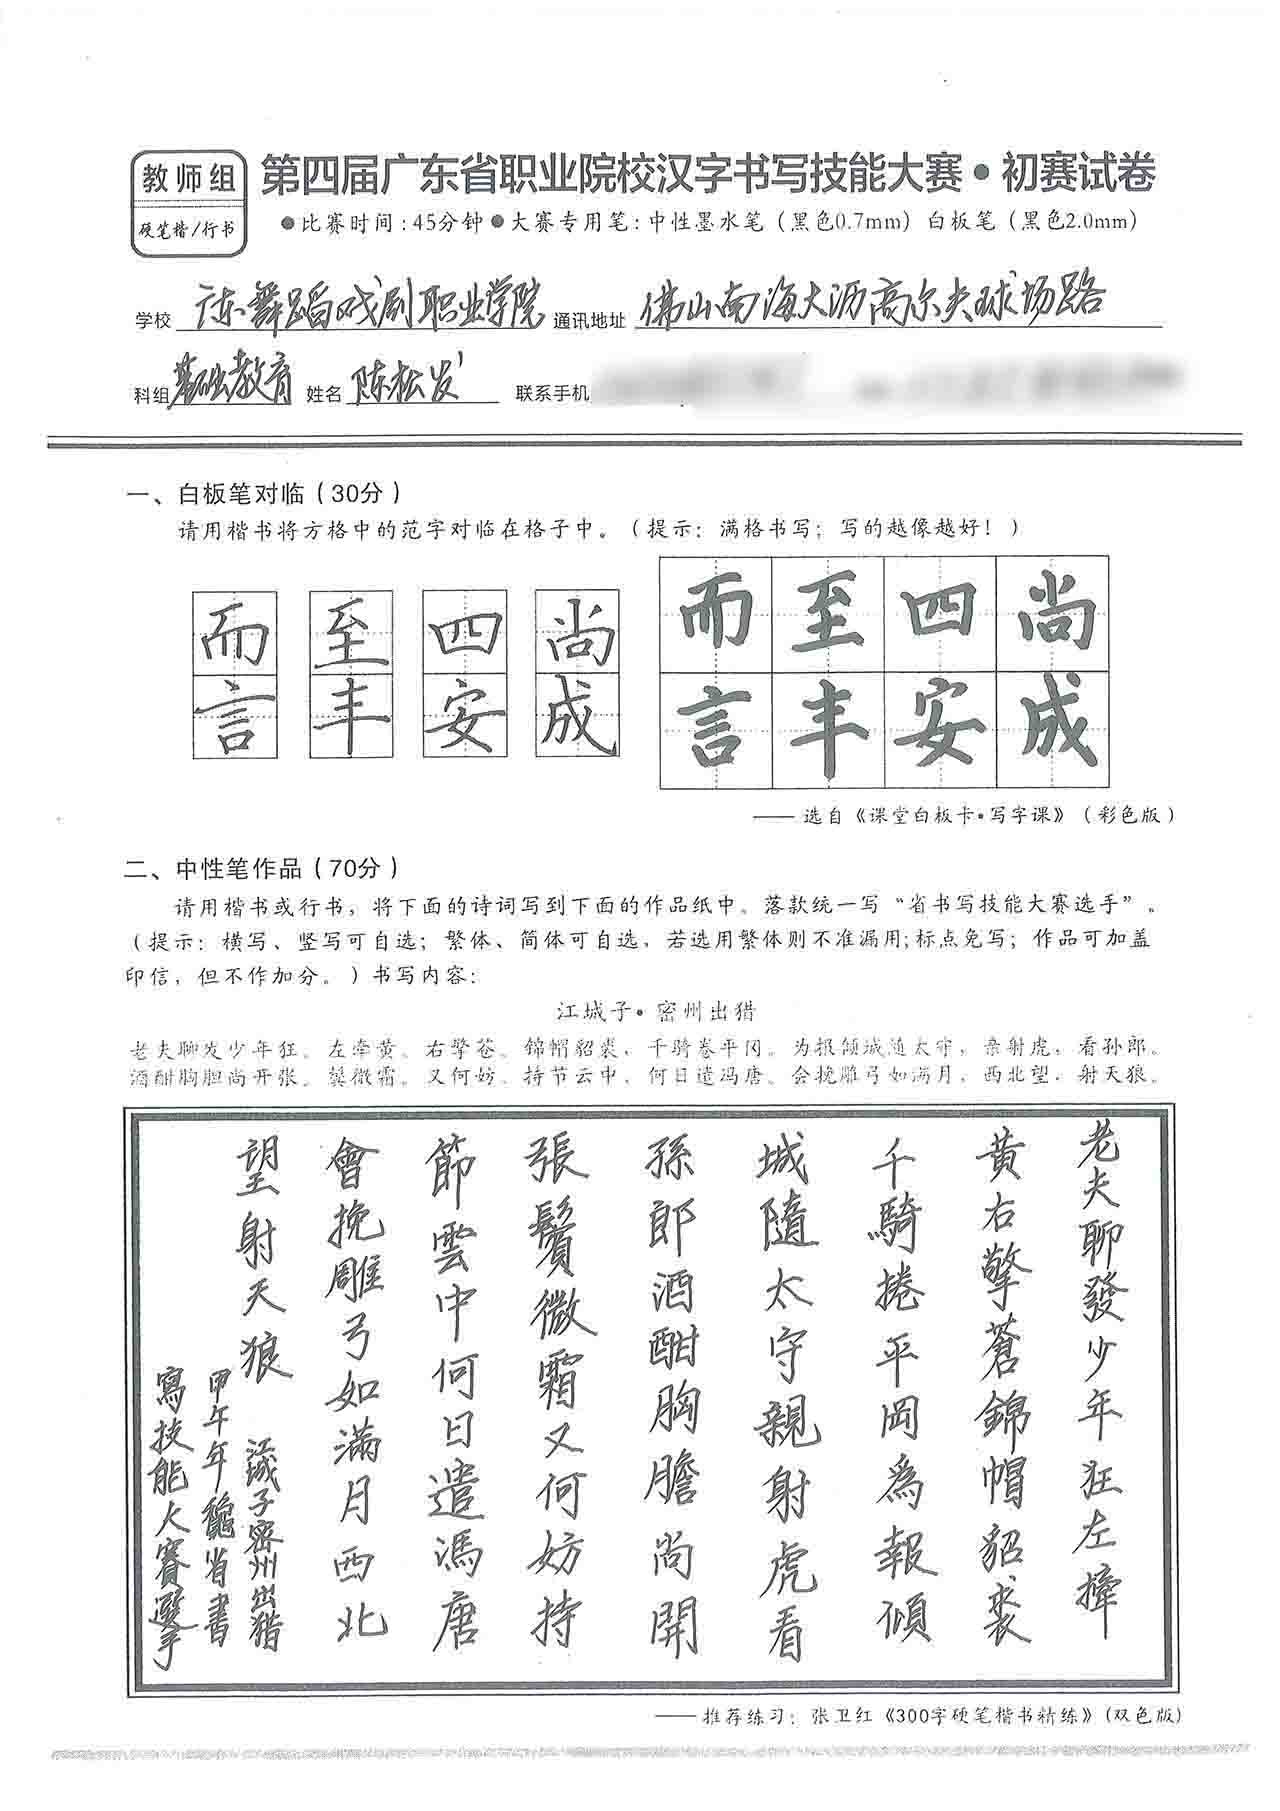 教师组
硬笔楷/行书
第四届广东省职业院校汉字书写技能大赛·初赛试卷
●比赛时间:45分钟●大赛专用笔:中性墨水笔（黑色0.7mm）白板笔（黑色2.0mm）
学校 广东舞蹈戏剧职业学院 通讯地址 佛山南海大沥高尔夫球场路
科组 基础教育 姓名 陈松发 联系手机
一、白板笔对临（30分）
请用楷书将方格中的范字对临在格子中。（提示：满格书写；写的越像越好！）
而 至 四 尚 而 至 四 尚
言 丰 安 成 言 丰 安 成
——选自《课堂白板卡·写字课》（彩色版）
二、中性笔作品（70分）
请用楷书或行书，将下面的诗词写到下面的作品纸中。落款统一写“省书写技能大赛选手”。
（提示：横写、竖写可自选；繁体、简体可自选，若选用繁体则不准漏用;标点免写；作品可加盖
印信，但不作加分。）书写内容：
江城子·密州出猎
老夫聊发少年狂。左牵黄。右擎苍。锦帽貂裘，千骑卷平冈。为报倾城随太守，亲射虎，看孙郎。
酒酣胸胆尚开张。鬓微霜。又何妨。持节云中，何日遣冯唐。会挽雕弓如满月，西北望，射天狼。
老夫聊發少年狂左撁
黄右擎蒼錦帽貂裘
千騎捲平岡為報傾
城隨太守親射虎看
孫郎酒酣胸膽尚開
張鬢微霜又何妨持
節雲中何日遣馮唐
會挽雕弓如滿月西北
望射天狼 江城子密州出猎
甲午年 省書
寫技能大賽選手
——推荐练习：张卫红《300字硬笔楷书精练》(双色版)